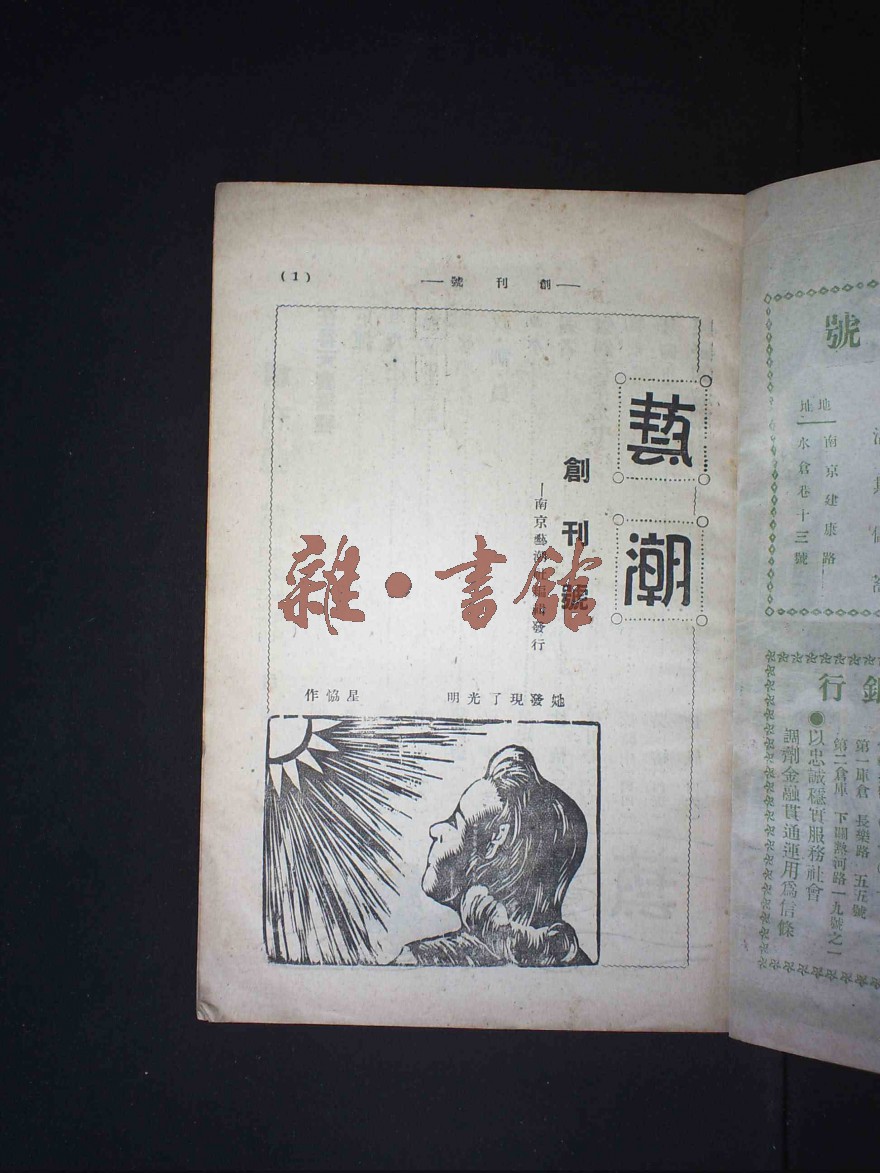 (1)
—創刊號—
藝潮
創刊號
—南京藝潮社編輯發行
她發現了光明
星恊作
雜·書館
號
地址
南京建康路
水倉巷十三號
銀行
●以忠誠穩實服務社會
調劑金融貫通運用爲信條
第一庫倉 長樂路 五五號
第二倉庫 下關熱河路一九號之一